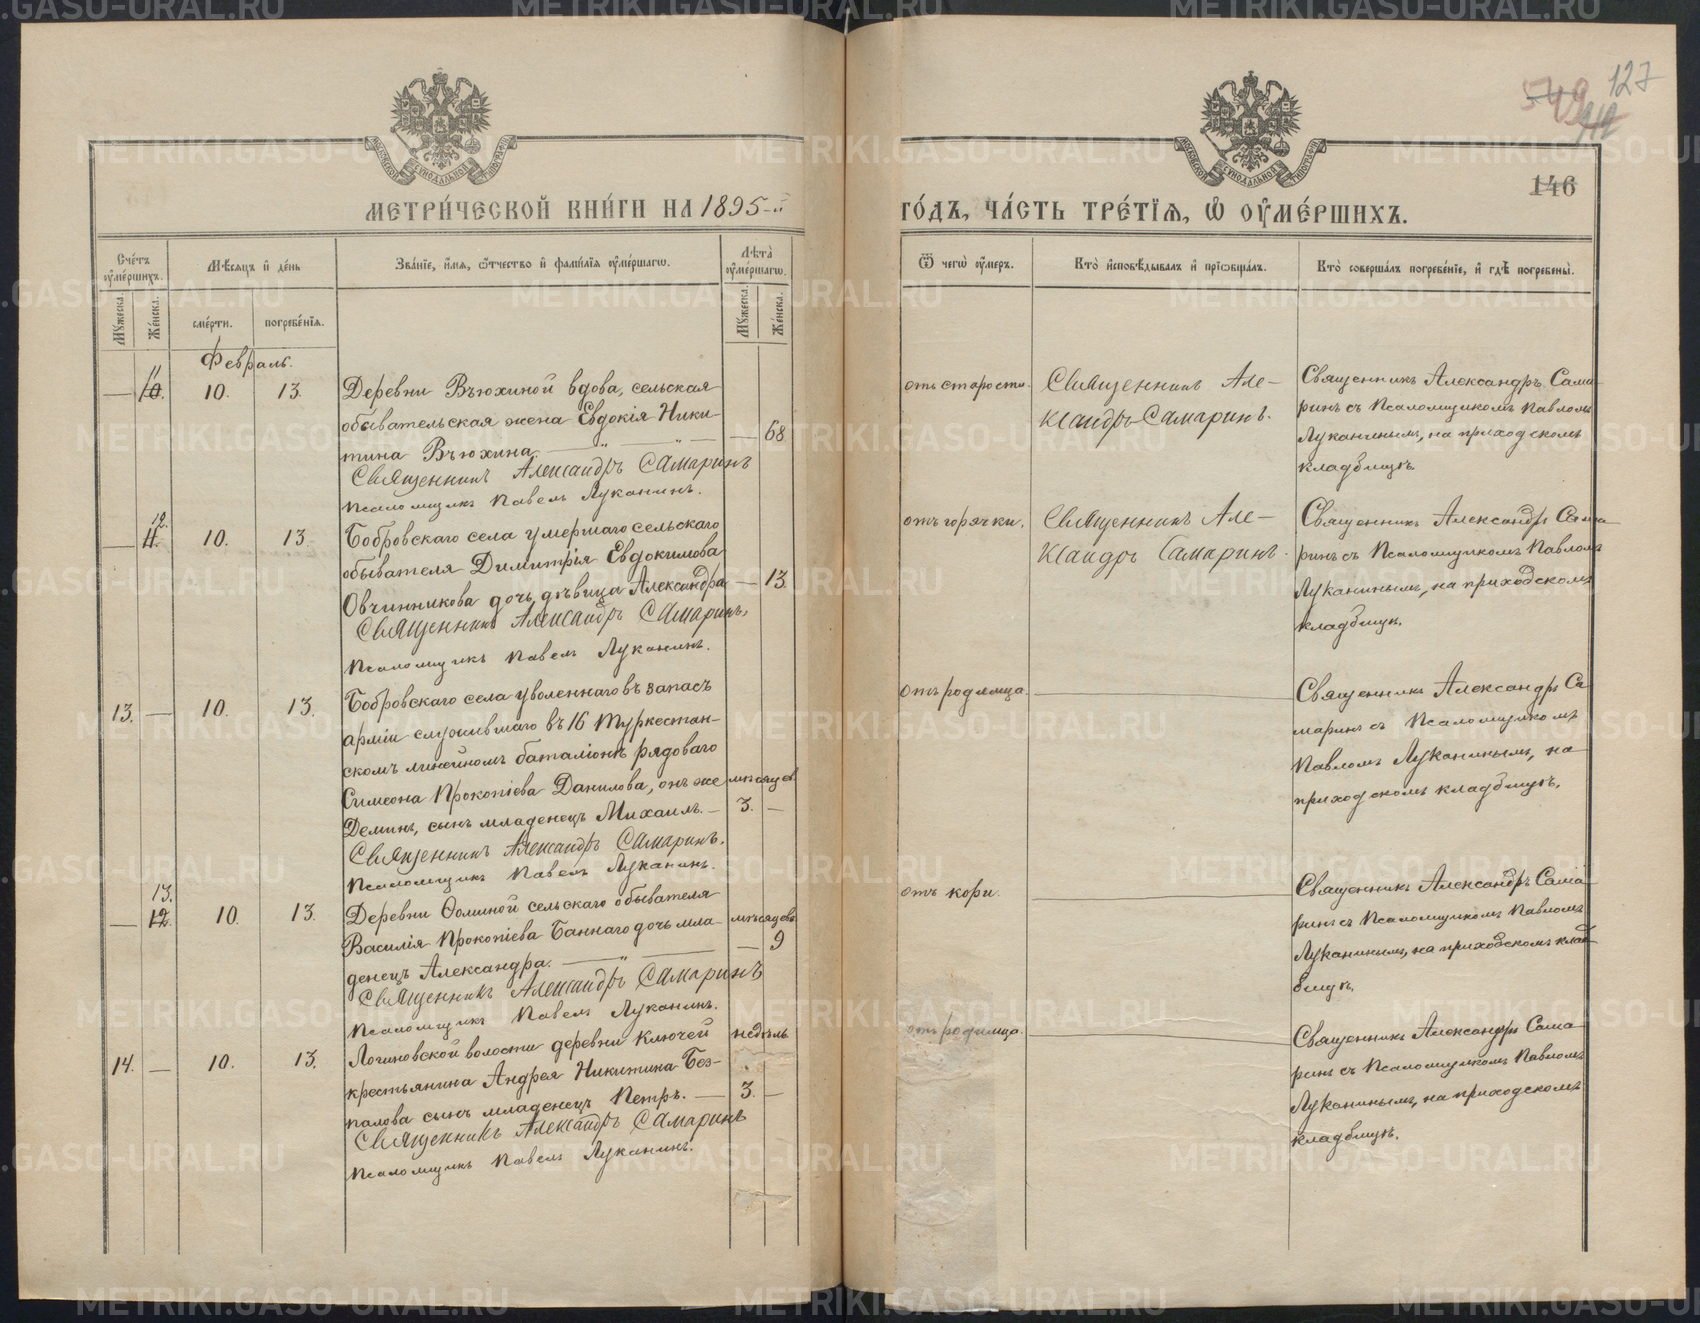 127
549
146
МЕТРИЧЕСКОЙ КНИГИ НА 1895-й
ГОДЪ, ЧАСТЬ ТРЕТІЯ, Ѿ ОУМЕРШИХЪ.
Счетъ оумершихъ.
Мужеска.
Женска.
Мѣсяцъ и день
смерти.
погребенія.
Званіе, имя, ѿтчество и фамилія оумершагѡ.
Лѣта оумершагѡ.
Мужеска.
Женска.
Ѿ чегѡ оумеръ.
Кто исповѣдывалъ и пріобщалъ.
Кто совершалъ погребеніе, и гдѣ погребены.
Февраль.
— 11 10. 10. 13.
Деревни Вьюхиной вдова, сельская
обывательская жена Евдокія Ники-
тина Вьюхина. — 68
Священникъ Александръ Самаринъ
Псаломщикъ Павелъ Луканинъ.
отъ старости.
Священникъ Але-
ксандръ Самаринъ.
Священникъ Александръ Сама-
ринъ съ Псаломщикомъ Павломъ
Луканинымъ, на приходскомъ
кладбищѣ.
— 12. 11. 10. 13.
Бобровскаго села умершаго сельскаго
обывателя Димитрія Евдокимова
Овчинникова дочь, дѣвица Александра — 13.
Священникъ Александръ Самаринъ,
Псаломщикъ Павелъ Луканинъ.
отъ горячки.
Священникъ Але-
ксандръ Самаринъ.
Священникъ Александръ Сама-
ринъ съ Псаломщикомъ Павломъ
Луканинымъ, на приходскомъ
кладбищѣ.
13. — 10. 13.
Бобровскаго села уволеннаго въ запасъ
арміи служившаго въ 16 Туркестан-
скомъ линейномъ баталіонѣ рядоваго
Симеона Прокопіева Данилова, онъ же мѣсяцев
Деминъ, сынъ младенецъ Михаилъ. — 3. —
Священникъ Александръ Самаринъ.
Псаломщикъ Павелъ Луканинъ.
отъ родимца.
Священникъ Александръ Са-
маринъ съ Псаломщикомъ
Павломъ Луканинымъ, на
приходскомъ кладбищѣ.
— 13. 12. 10. 13.
Деревни Ѳоминой сельскаго обывателя
Василія Прокопіева Баннаго дочь мла- мѣсяцевъ
денецъ Александра. — 9
Священникъ Александръ Самаринъ
Псаломщикъ Павелъ Луканинъ.
отъ кори.
Священникъ Александръ Сама-
ринъ съ Псаломщикомъ Павломъ
Луканинымъ, на приходскомъ клад-
бищѣ.
14. — 10. 13.
Логиновской волости деревни Ключей недѣль
крестьянина Андрея Никитина Без-
палова сынъ младенецъ Петръ. — 3. —
Священникъ Александръ Самаринъ
Псаломщикъ Павелъ Луканинъ.
отъ родимца.
Священникъ Александръ Сама-
ринъ съ Псаломщикомъ Павломъ
Луканинымъ, на приходскомъ
кладбищѣ.
METRIKI.GASO-URAL.RU